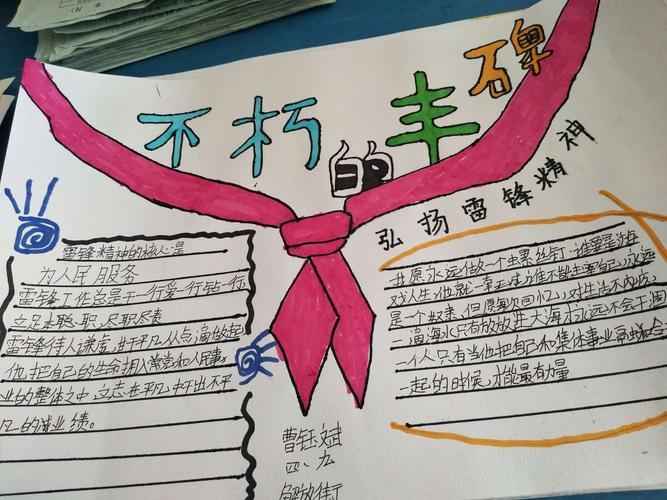 不朽的丰碑
弘扬雷锋精神
雷锋精神的核心是
为人民服务
雷锋工作总是干一行爱一行钻一行
立足本职、尽职尽责
雷锋待人谦虚,于平凡从点滴做起
他把自己的生命拥入党和人民事
业的整体之中,立志在平凡中干出不平
凡的业绩。
永远做一个螺丝钉,谁要是游
戏人生,他就一事无成,谁不能主宰自己,永远
是一个奴隶,但愿每次回忆,对生活不内疚
一滴海水只有放进大海才永远不会干涸
一个人只有当他把自己和集体事业融合
一起的时候,才能最有力量
曹钰斌
四、九
解放街